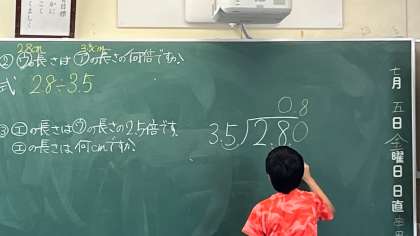 28cm 35cm
② ㋒の長さは㋐の長さの何倍ですか。
式 28÷3.5
③ ㋓の長さは㋒の長さの2.5倍です。
㋓の長さは何cmですか。
0.8
3.5)2.80
七月五日金曜日日直